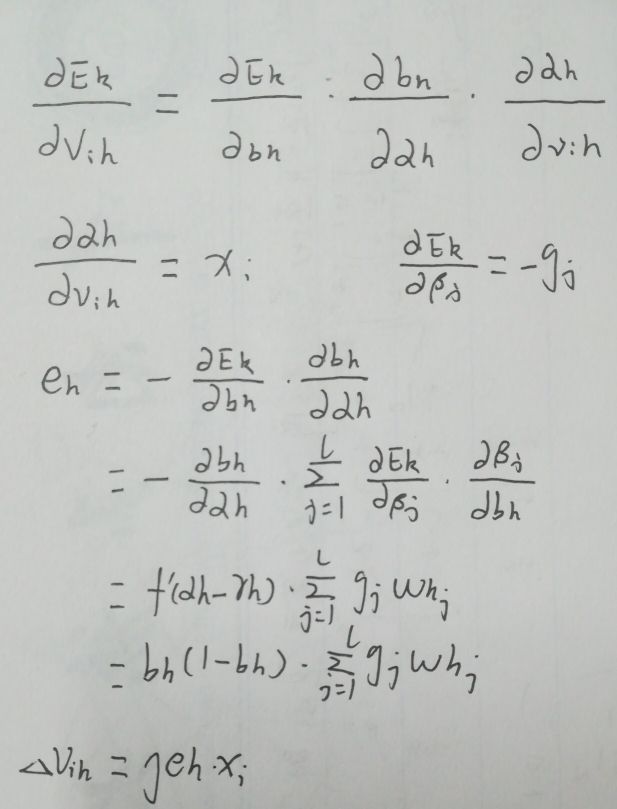 ∂Ek/∂Vih = ∂Ek/∂bh · ∂bh/∂αh · ∂αh/∂vih
∂αh/∂vih = xi    ∂Ek/∂βj = -gj
eh = - ∂Ek/∂bh · ∂bh/∂αh
= - ∂bh/∂αh · Σ_{j=1}^{l} ∂Ek/∂βj · ∂βj/∂bh
= f'(αh-γh) · Σ_{j=1}^{l} gj whj
= bh(1-bh) · Σ_{j=1}^{l} gj whj
△Vih = ηeh·xi